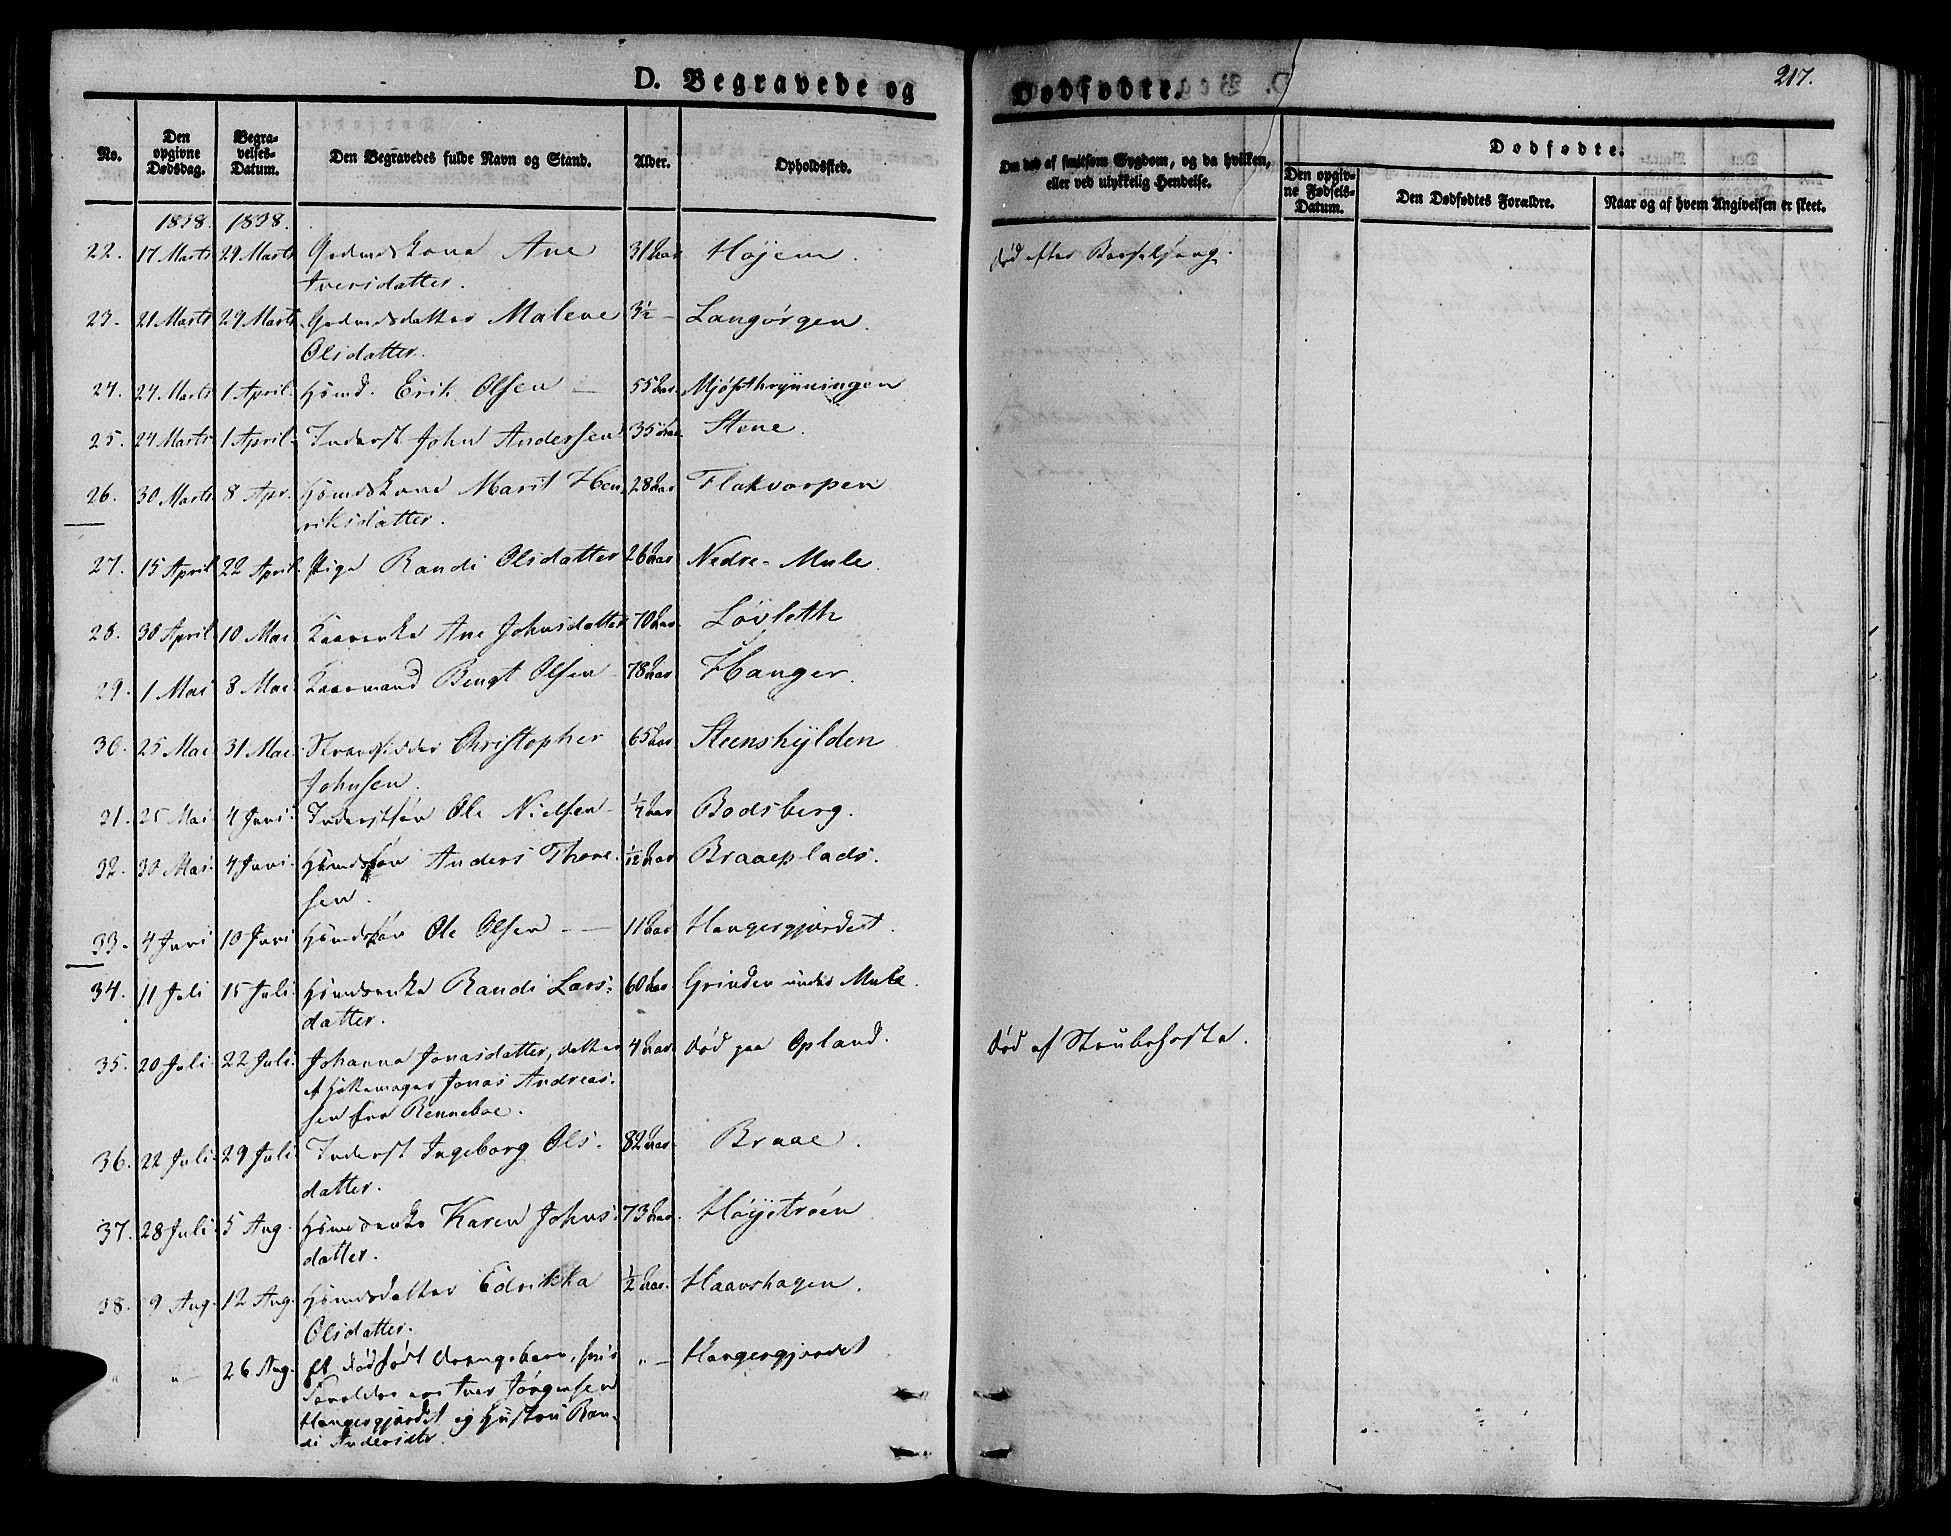 D. Begravede og Dødfødte.
217.
No.
Den opgivne Dødsdag.
Begravelses-Datum.
Den Begravedes fulde Navn og Stand.
Alder.
Opholdssted.
Om død af smitsom Sygdom, og da hvilken, eller ved ulykkelig Hendelse.
Dødfødte.
Den opgivne Fødsels-Datum.
Den Dødfødtes Forældre.
Naar og af hvem Angivelsen er skeet.
1838. 1838.
22. 17 Marts 29 Marts Gdmdskone Ane 31 Aar Højem. død efter Barselseng.
Iversdatter.
23. 21 Marts 29 Marts Gdmdsdatter Malene 3½ — Langørgen.
Olsdatter.
24. 24 Marts 1 April. Hsmd. Erik Olsen — 55 Aar. Mjøsthrynningen
25. 24 Marts 1 April. Inderst John Andersen 35 Aar. Stene.
26. 30 Marts 8 Apr. Hsmdskone Marit Hen- 28 Aar Flakvorpen
riksdatter.
27. 15 April 22 April. Pige Randi Olsdatter 26 Aar Nedre-Mule.
28. 30 April. 10 Mai Kaarenke Ane Johnsdatter 70 Aar. Løvleth
29. 1 Mai 8 Mai Kaarmand Bengt Olsen 78 Aar. Hanger.
30. 25 Mai 31 Mai Strandsidder Christopher 65 Aar Steenshylden
Johnsen.
31. 25 Mai. 4 Juni. Inderstsøn Ole Nielsen ½ Aar Bodsberg.
32. 30 Mai. 4 Juni. Hsmdssøn Anders Thore- 1/12 Aar Braaeplads.
sen.
33. 4 Juni 10 Juni Hsmdssøn Ole Olsen — 11 Aar Hangersgjærdest.
34. 11 Juli 15 Juli. Hsmdsenke Randi Lars- 60 Aar. Grinden under Mule.
datter.
35. 20 Juli. 22 Juli. Johanna Jonasdatter, datter 4 Aar. død paa Opland. død af Strubehoste.
af Hjulemager Jonas Andreas-
sen fra Renneboe.
36. 22 Juli. 29 Juli. Inderst Ingeborg Ols- 82 Aar. Braae.
datter.
37. 28 Juli. 5 Aug. Hsmdsenke Karen Johns- 73 Aar. Høystrøen
datter.
38. 9 Aug. 12 Aug. Hsmdsdatter Edrikka ½ Aar. Haavshagen.
Olsdatter.
" " 26 Aug. Et dødfødt Drengebarn, hvis " — Hangersgjærdet
Forældre ere Iver Jørgensen
Hangersgjærdet og Hustru Ran-
di Andersdtr.